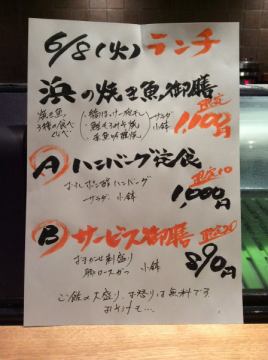 6/8(火) ランチ
浜の焼き魚御膳
焼き魚
3種の食べ
くらべ
サラダ
小鉢
限定
1,000円
A ハンバーグ定食 限定10
おろしポン酢ハンバーグ
サラダ 小鉢
1,000円
B サービス御膳 限定20
おまかせ刺盛り
豚ロースカツ 小鉢
890円
ご飯の大盛り、お替りは無料です。